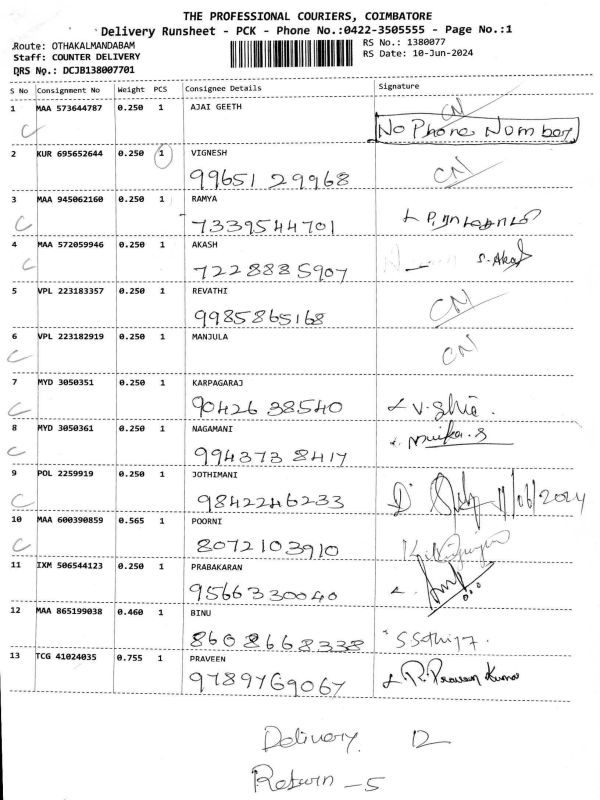 THE PROFESSIONAL COURIERS, COIMBATORE
Delivery Runsheet - PCK - Phone No.:0422-3505555 - Page No.:1
Route: OTHAKALMANDABAM RS No.: 1380077
Staff: COUNTER DELIVERY RS Date: 10-Jun-2024
DRS No.: DCJB138007701
S No Consignment No Weight PCS Consignee Details Signature
1 MAA 573644787 0.250 1 AJAI GEETH CN
C No Phone Number
2 KUR 695652644 0.250 1 VIGNESH CN
99651 29968
3 MAA 945062160 0.250 1 RAMYA
C 7339544701
4 MAA 572059946 0.250 1 AKASH S. Akash
C 7228885907
5 VPL 223183357 0.250 1 REVATHI CN
9985865168
6 VPL 223182919 0.250 1 MANJULA CN
C
7 MYD 3050351 0.250 1 KARPAGARAJ
C 90426 38540
8 MYD 3050361 0.250 1 NAGAMANI
C 994373 8417
9 POL 2259919 0.250 1 JOTHIMANI
C 9842246233
10 MAA 600390859 0.565 1 POORNI
C 8072103910
11 IXM 506544123 0.250 1 PRABAKARAN
9566330040
12 MAA 865199038 0.460 1 BINU
8608668338
13 TCG 41024035 0.755 1 PRAVEEN R. Praveen Kumar
9789769067
Delivery 12
Return - 5